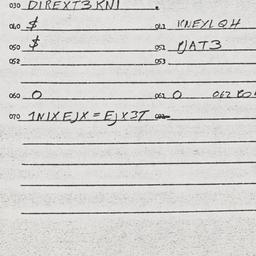 030 DIREXT3 KNI .
040 $ 041 KNEXLQH
050 $ 051 PJAT3
052 053
060 O 061 O 062
070 1NIXEJX = EJX3T